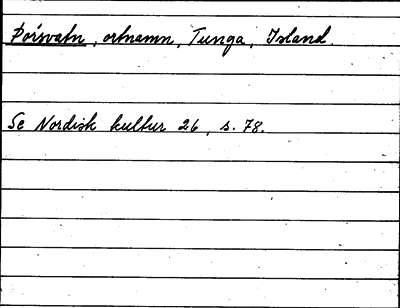 Þórsvatn, ortnamn, Tunga, Island.
Se Nordisk kultur 26, s. 78.